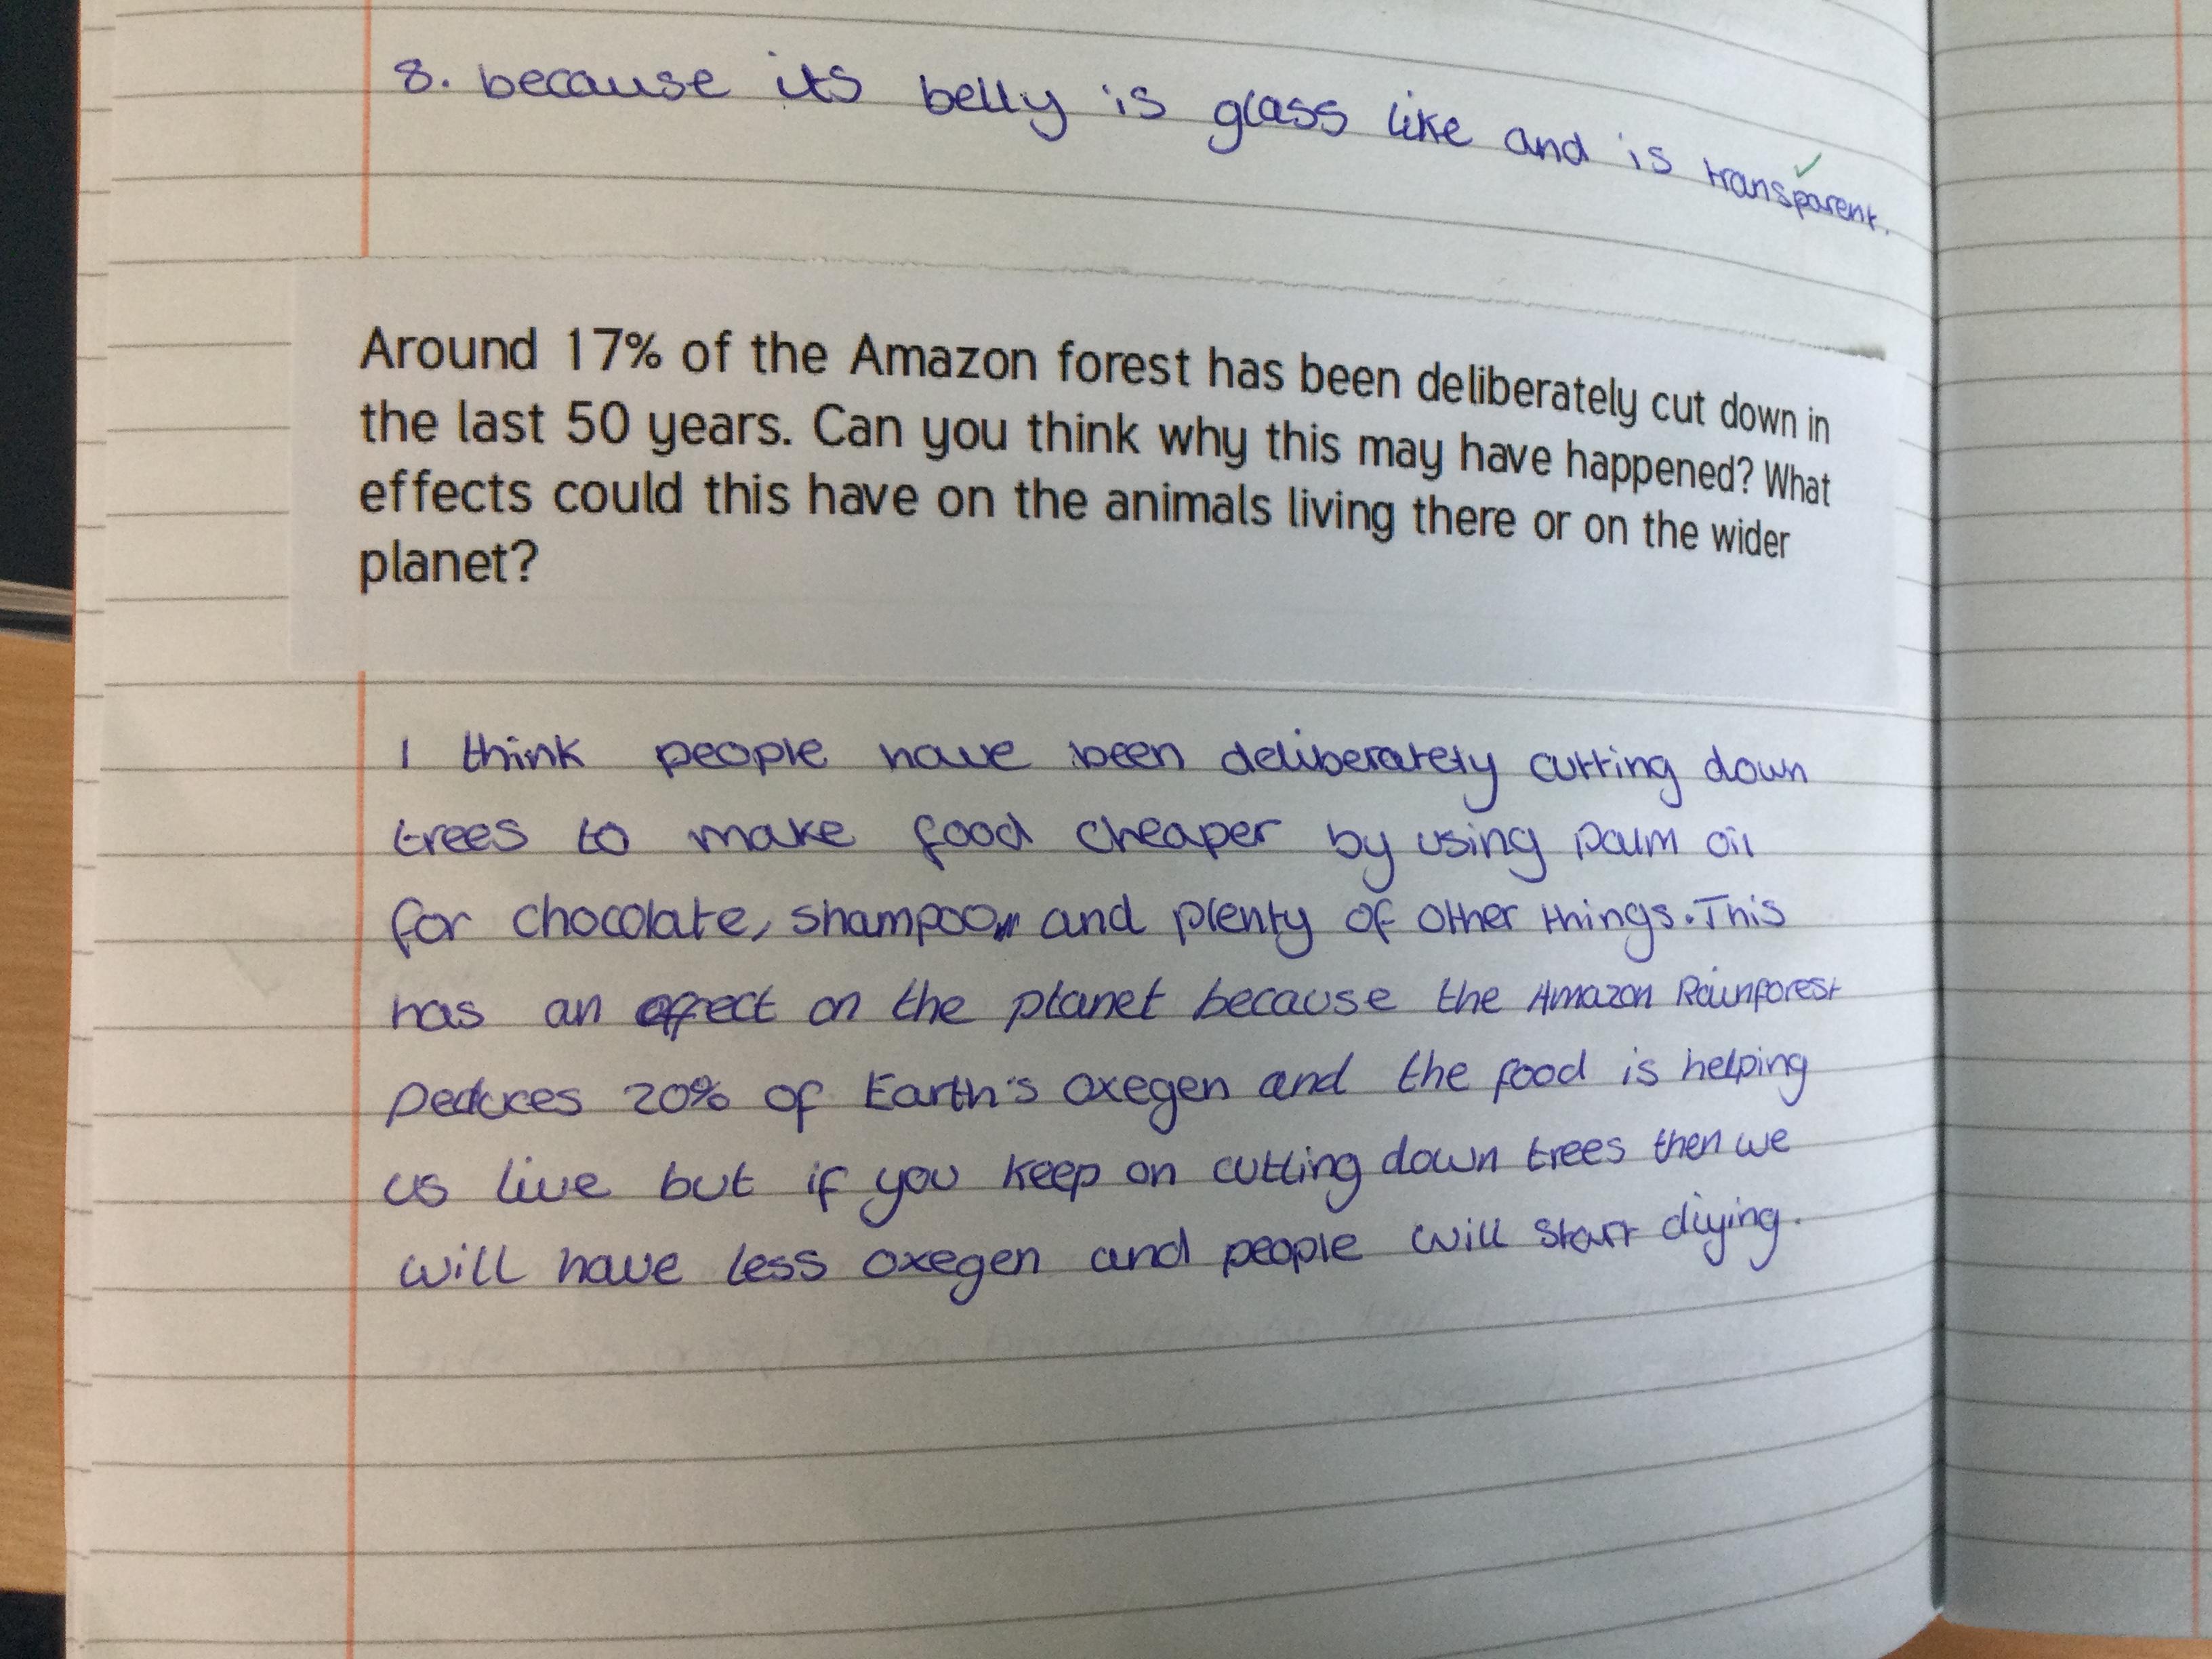 8. because its belly is glass like and is transparent.
Around 17% of the Amazon forest has been deliberately cut down in
the last 50 years. Can you think why this may have happened? What
effects could this have on the animals living there or on the wider
planet?
I think people have been deliberately cutting down
trees to make food cheaper by using palm oil
for chocolate, shampoo and plenty of other things. This
has an effect on the planet because the Amazon Rainforest
peduces 20% of Earth's oxegen and the food is helping
us live but if you keep on cutting down trees then we
will have less oxegen and people will start diying.